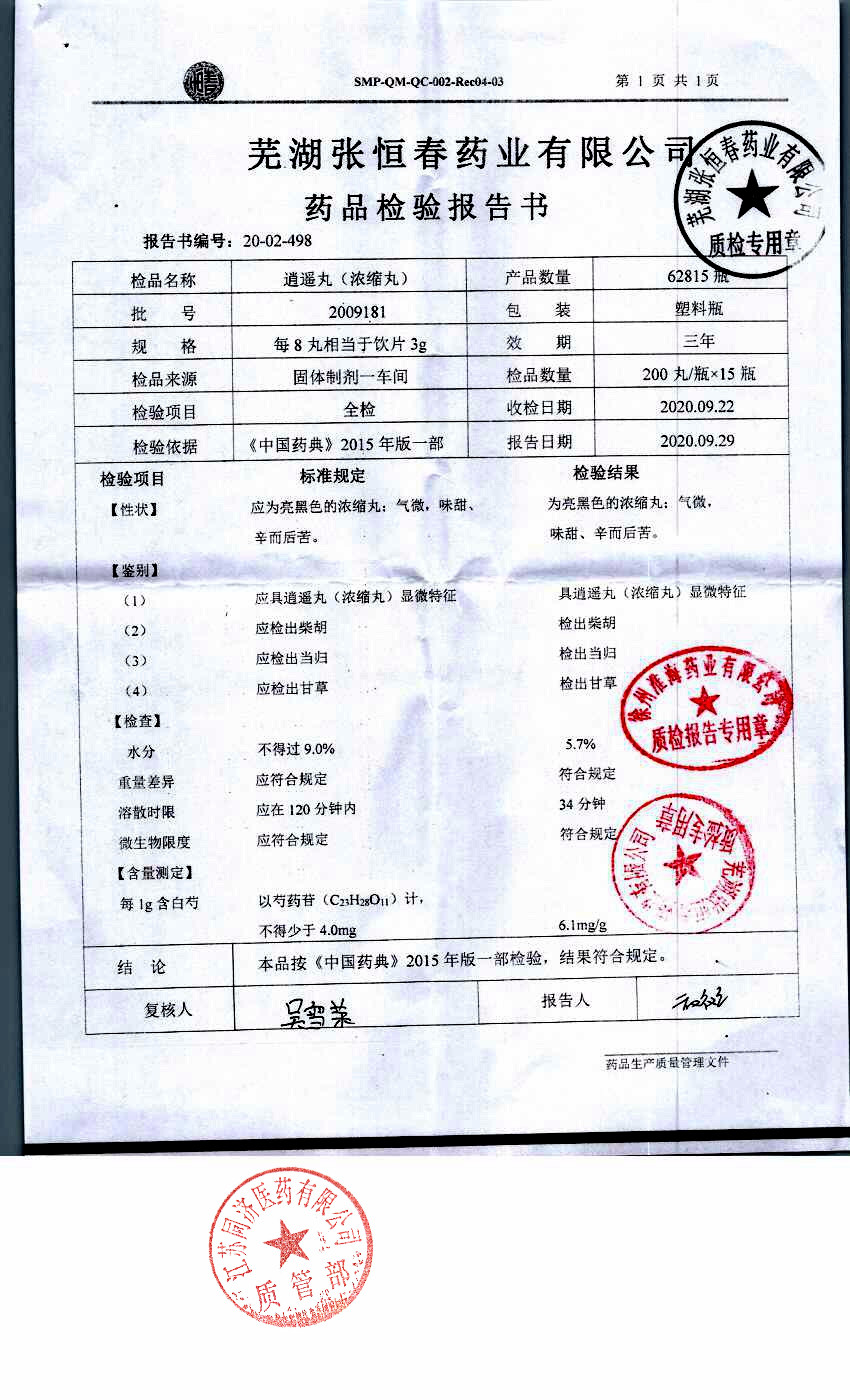 SMP-QM-QC-002-Rec04-03 第 1 页 共 1 页
芜湖张恒春药业有限公司
芜湖张恒春药业有限公司
质检专用章
药品检验报告书
报告书编号：20-02-498
检品名称 逍遥丸（浓缩丸） 产品数量 62815 瓶
批 号 2009181 包 装 塑料瓶
规 格 每 8 丸相当于饮片 3g 效 期 三年
检品来源 固体制剂一车间 检品数量 200 丸/瓶×15 瓶
检验项目 全检 收检日期 2020.09.22
检验依据 《中国药典》2015 年版一部 报告日期 2020.09.29
检验项目 标准规定 检验结果
【性状】 应为亮黑色的浓缩丸；气微，味甜、 为亮黑色的浓缩丸；气微，
辛而后苦。 味甜、辛而后苦。
【鉴别】
（1） 应具逍遥丸（浓缩丸）显微特征 具逍遥丸（浓缩丸）显微特征
（2） 应检出柴胡 检出柴胡
（3） 应检出当归 检出当归
（4） 应检出甘草 检出甘草
徐州淮海药业有限公司
质检报告专用章
【检查】
水分 不得过 9.0% 5.7%
重量差异 应符合规定 符合规定
溶散时限 应在 120 分钟内 34 分钟
微生物限度 应符合规定 符合规定
质检专用章
【含量测定】
每 1g 含白芍 以芍药苷（C23H28O11）计，
不得少于 4.0mg 6.1mg/g
结 论 本品按《中国药典》2015 年版一部检验，结果符合规定。
复核人 吴雪莱 报告人
药品生产质量管理文件
江苏同济医药有限公司
质管部